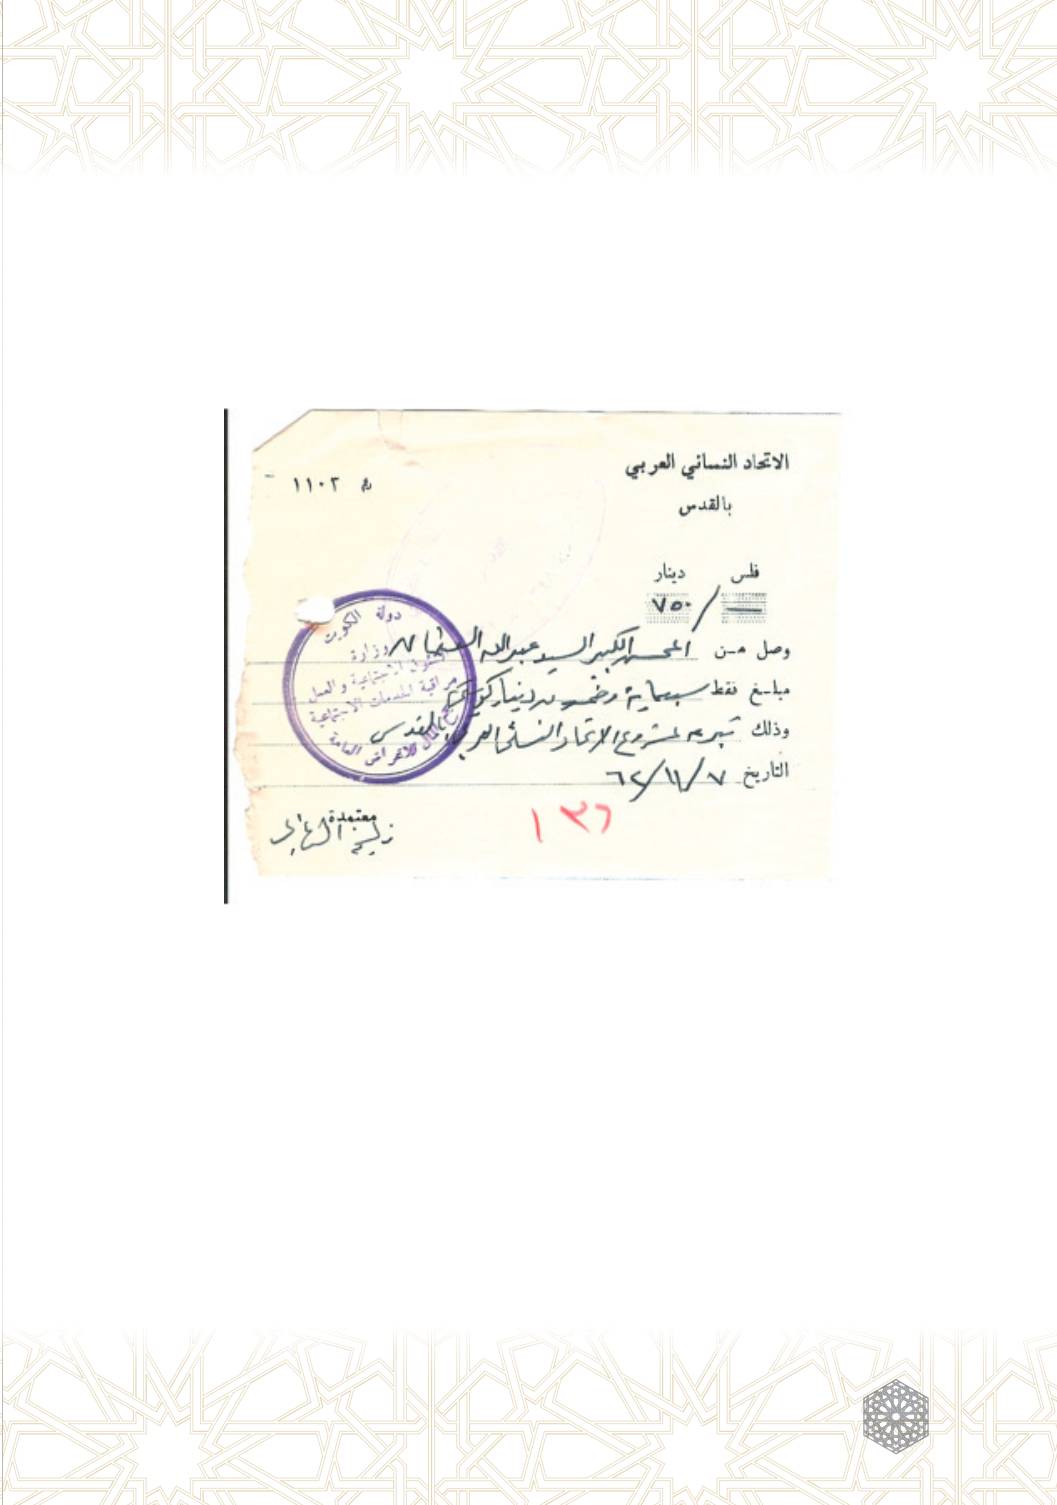 الاتحاد النسائي العربي
بالقدس
رقم ١١٠٢
فلس دينار
— / ٧٥٠
وصل من المحسن الكبير السيد عبدالله العثمان
مبلغ فقط سبعماية وخمسون دينار كويتي
وذلك تبرعه لمشروع الاتحاد النسائي العربي بالقدس
التاريخ ٧/١١/٦٢
معتمدة
١٣٦
دولة الكويت
وزارة
الشئون الاجتماعية والعمل
مراقبة الخدمات الاجتماعية
جمع المال للاغراض العامة